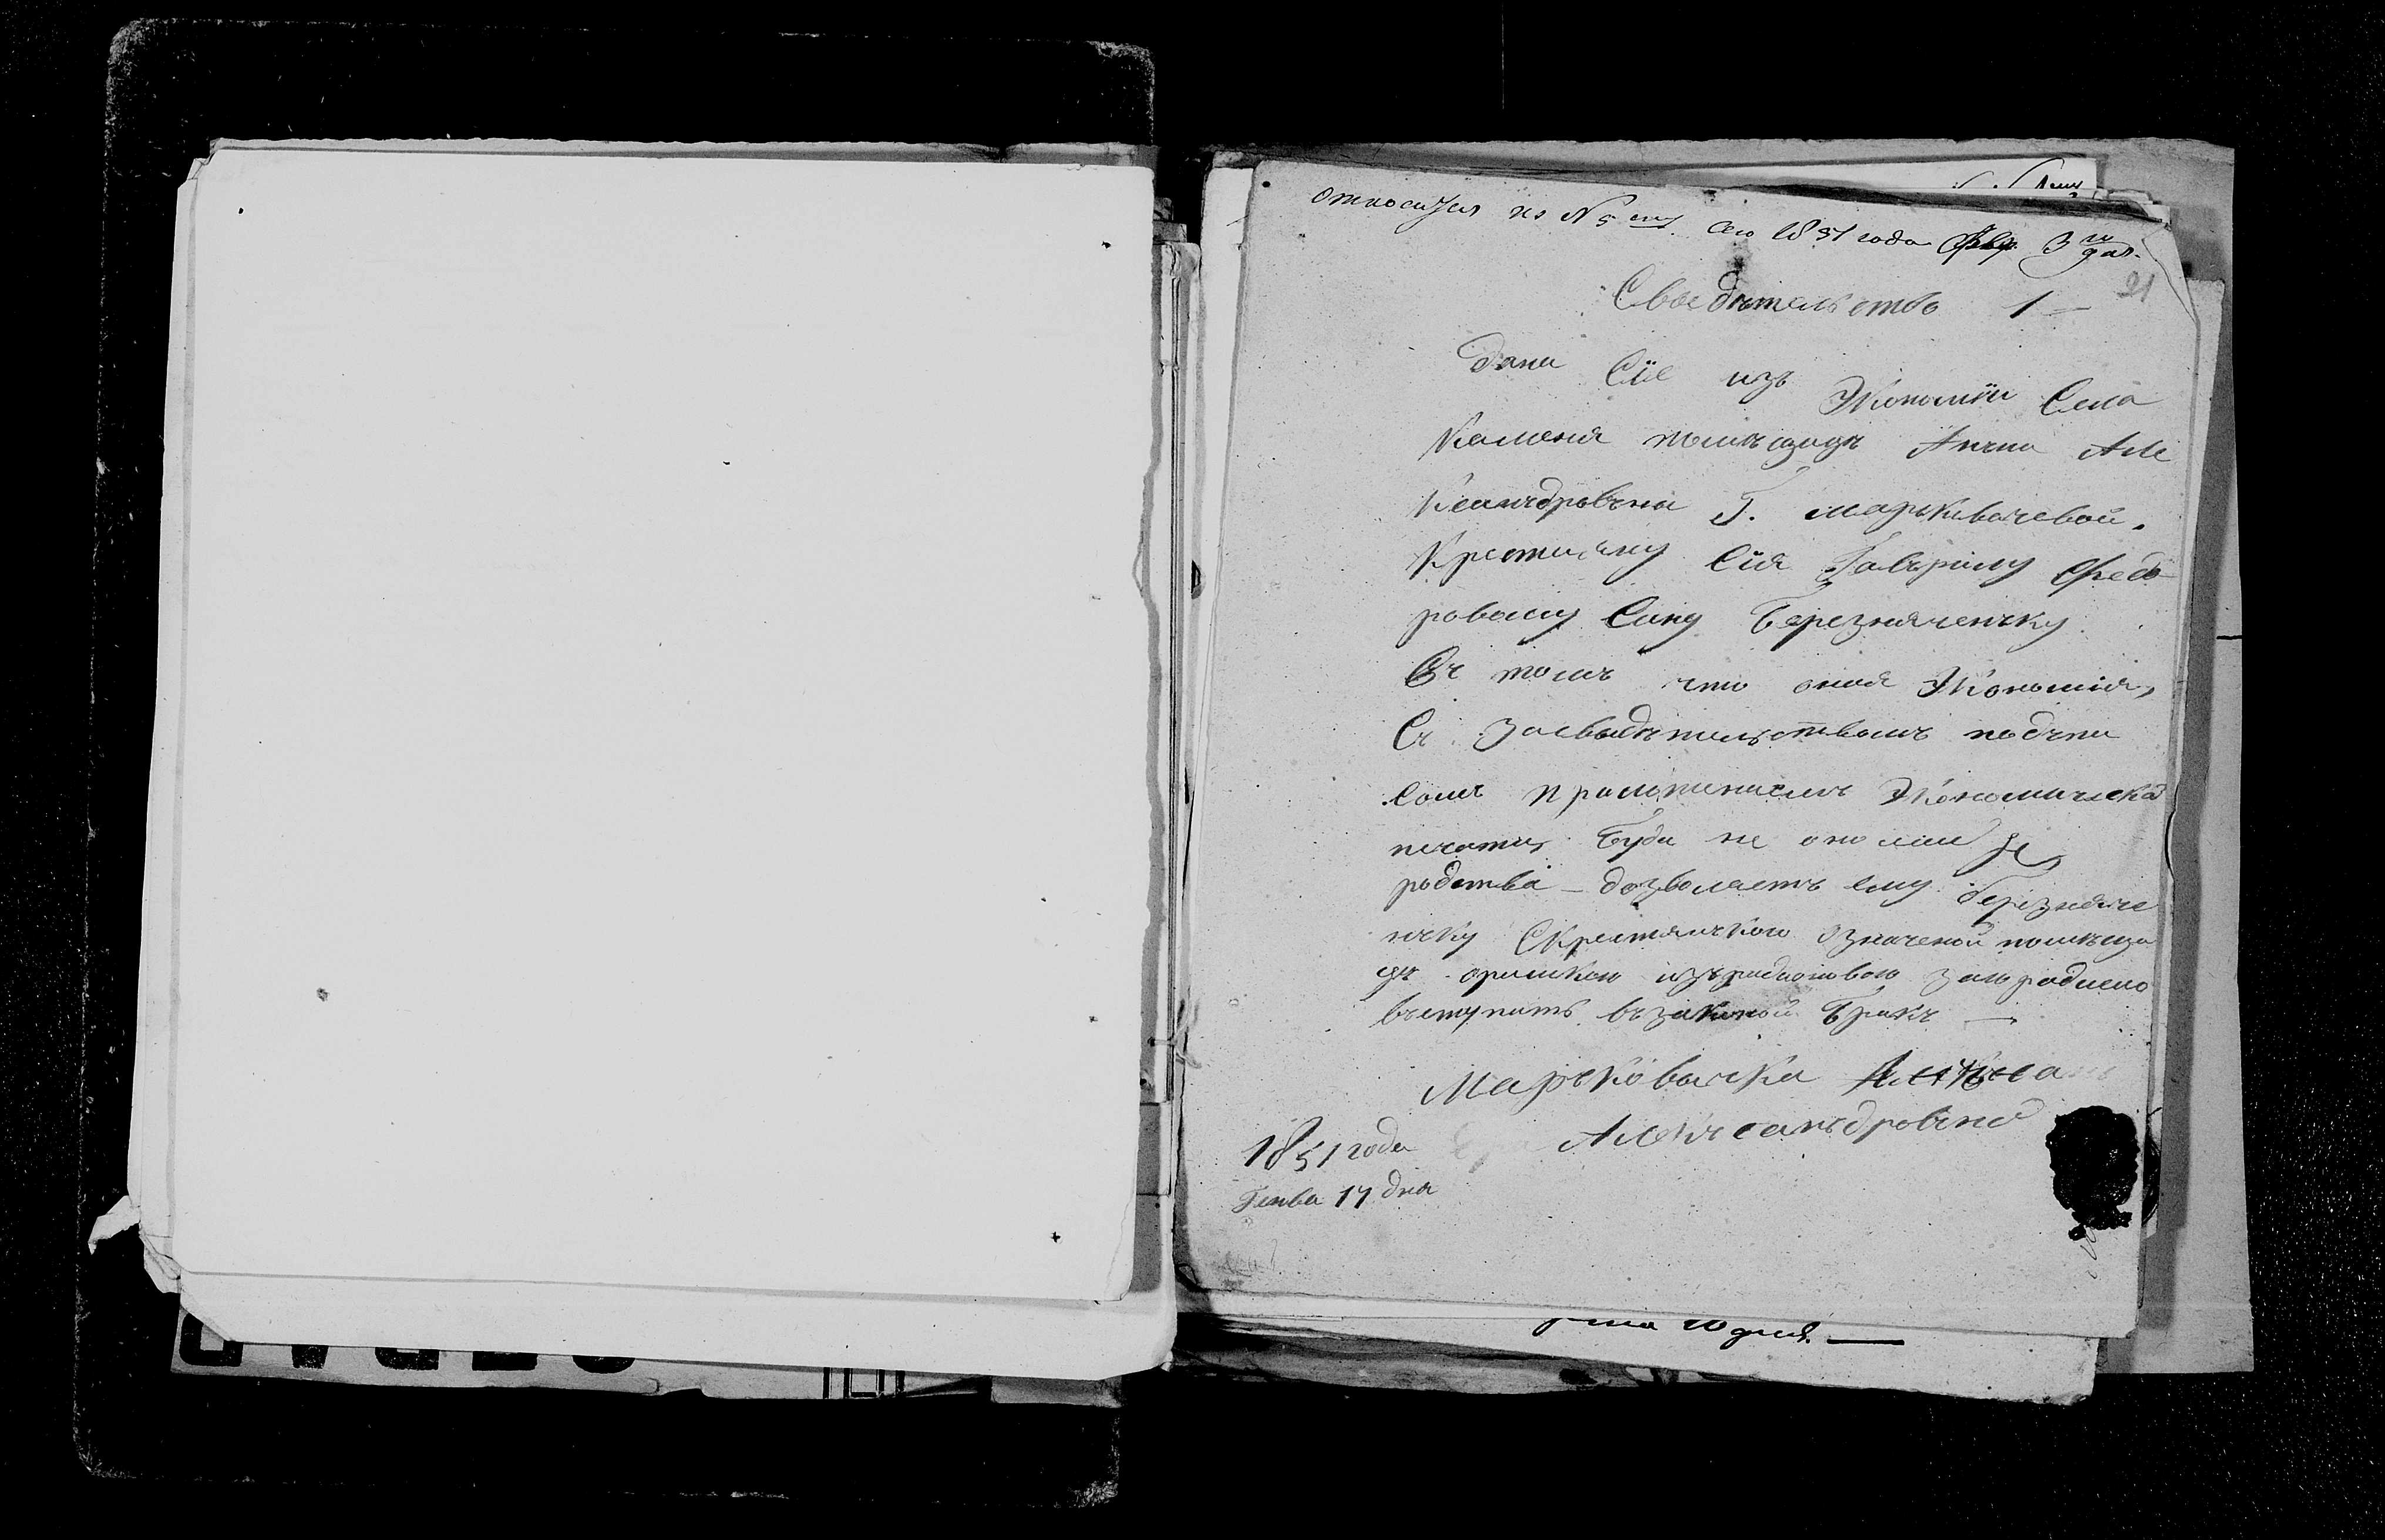 относится къ №5 му. сего 1851 года Февр. 3 го дня.
21
Свведѣтельство 1
Дана Сіе изъ Экономіи Села
Каменя помѣщицѣ Анъна Але
Ксанъдровъна Г. марькевичевой.
Крестияну Сія Гавърилу Федо
ровому Сину Березняченъку
Въ томъ что оная Экономія,
Съ Засвидѣтельствомъ подъпи
сомъ приложениемъ Экономической
печати, Буди не оно
родства – дозволяетъ ему березняче
нъку Скрестянъкою означеной помѣщи
въступить въ законой Бракъ —
Маръковичка Анъна
Алекъсанъдровъна
1851 года
Генва 17 дня
10 дня.